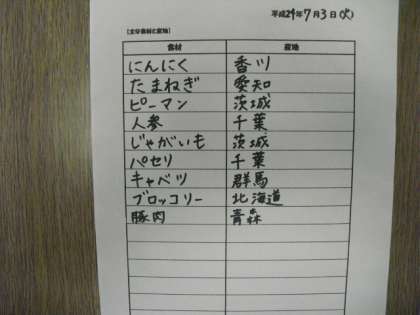 平成24年7月3日(火)
【主な食材と産地】
食材 産地
にんにく 香川
たまねぎ 愛知
ピーマン 茨城
人参 千葉
じゃがいも 茨城
パセリ 千葉
キャベツ 群馬
ブロッコリー 北海道
豚肉 青森